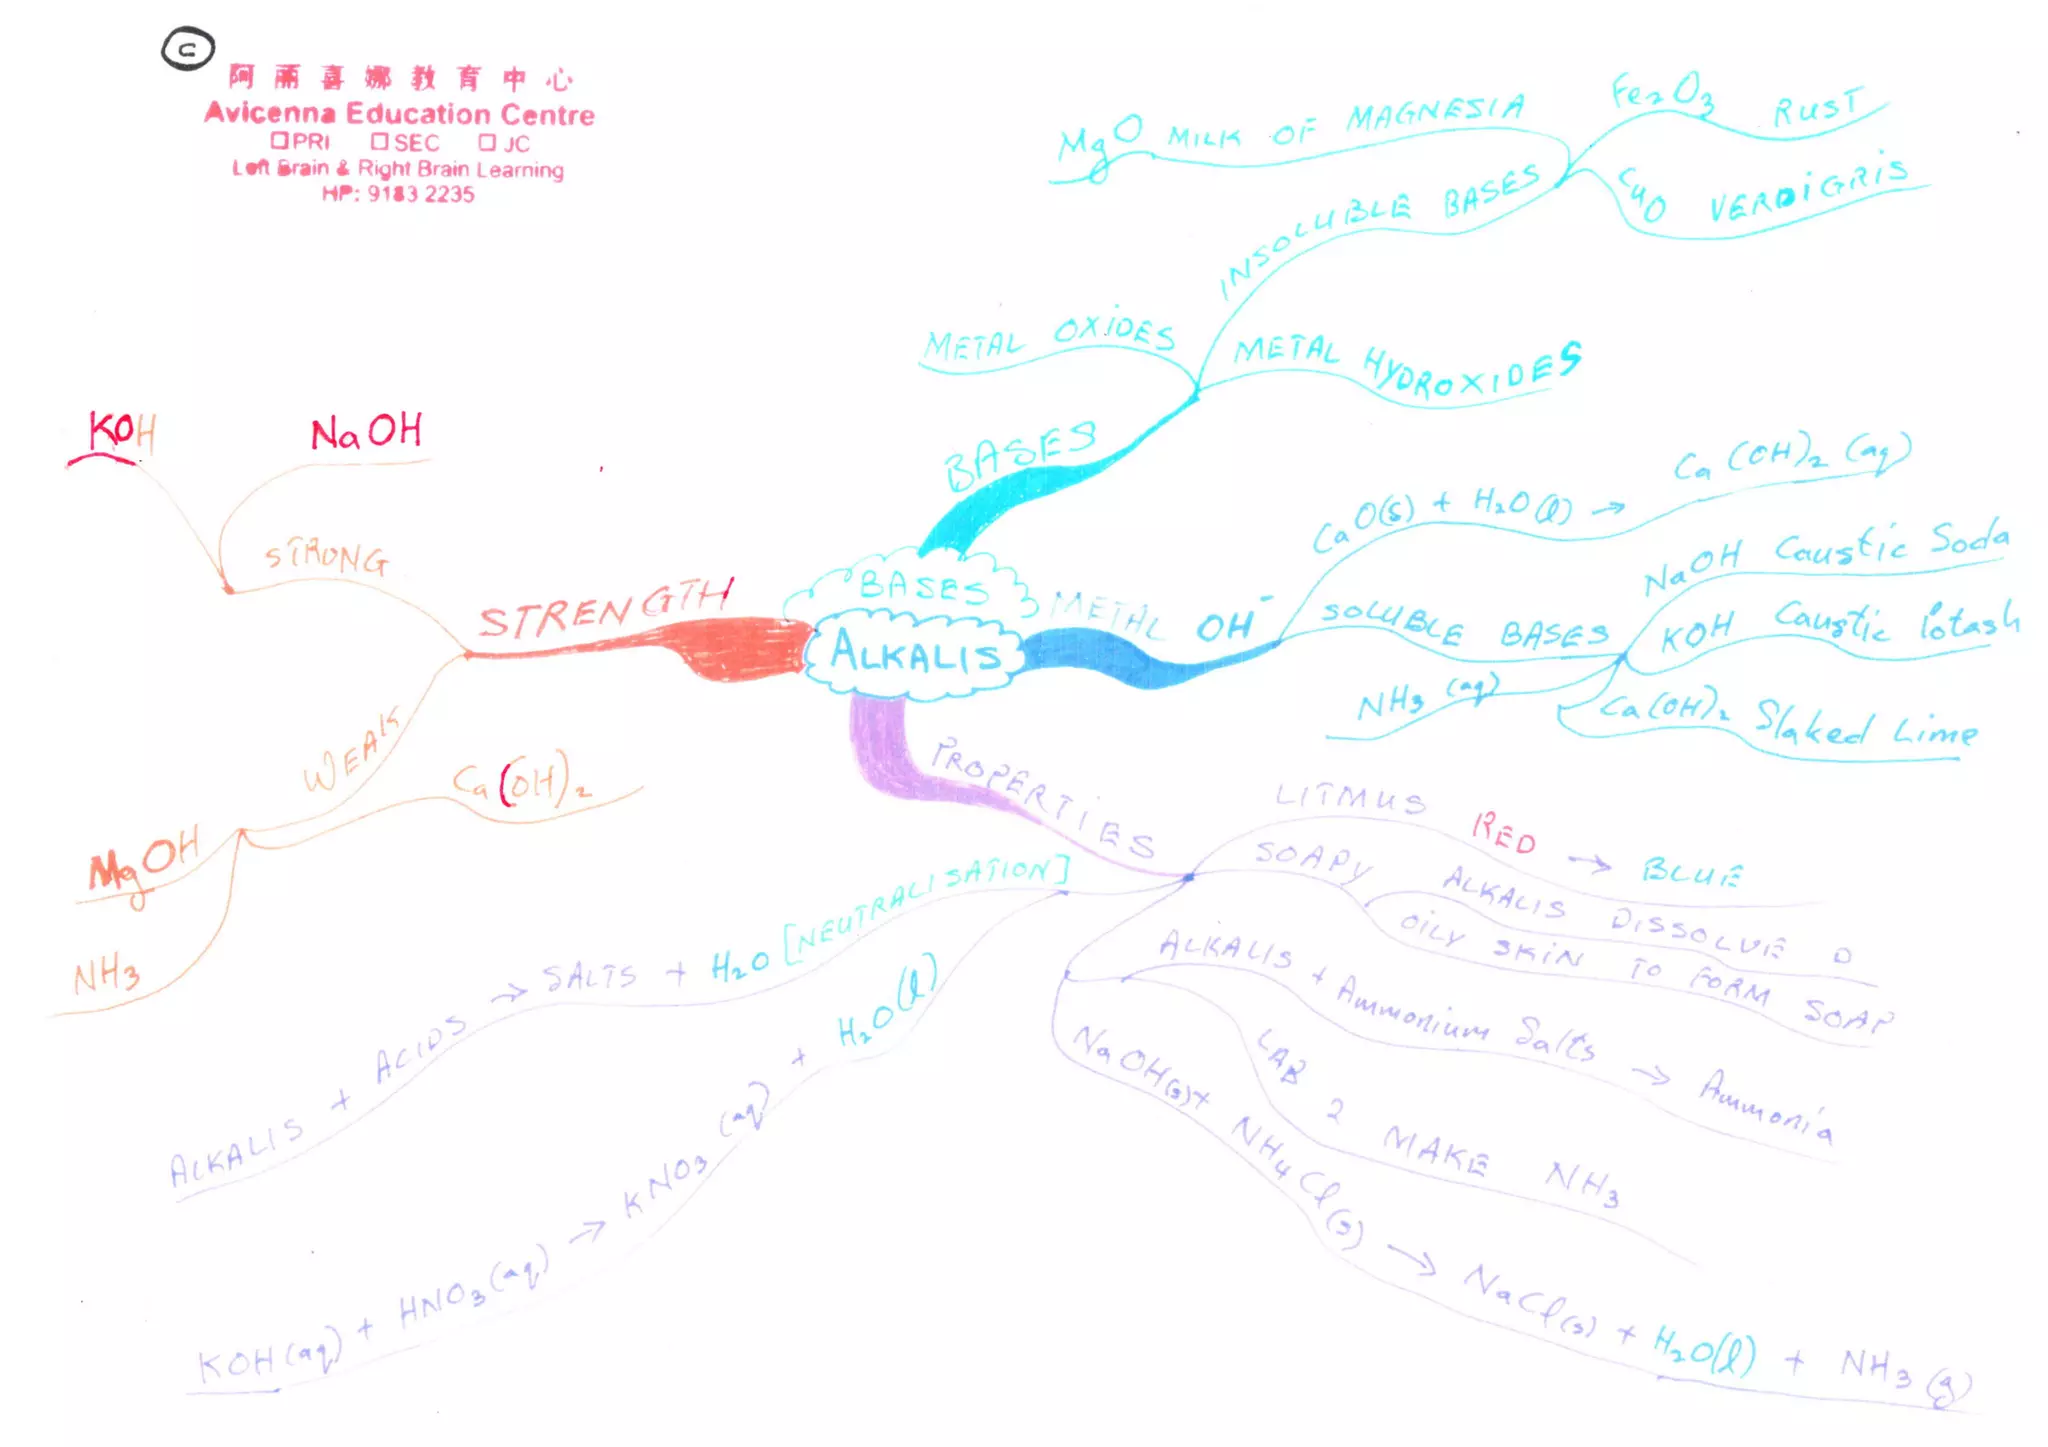 c
阿丽喜娜教育中心
Avicenna Education Centre
☐PRI ☐SEC ☐JC
Left Brain & Right Brain Learning
HP: 9183 2235
BASES
ALKALIS
BASES
METAL OXIDES
INSOLUBLE BASES
MgO MILK OF MAGNESIA
Fe₂O₃ RUST
CuO VERDIGRIS
METAL HYDROXIDES
METAL OH⁻
CaO(s) + H₂O(l) → Ca(OH)₂ (aq)
SOLUBLE BASES
NaOH Caustic Soda
KOH Caustic Potash
Ca(OH)₂ Slaked Lime
NH₃ (aq)
PROPERTIES
LITMUS RED → BLUE
SOAPY
ALKALIS DISSOLVE D
OILY SKIN TO FORM SOAP
ALKALIS + Ammonium Salts → Ammonia
LAB 2 MAKE NH₃
NaOH(s) + NH₄Cl(s) → NaCl(s) + H₂O(l) + NH₃(g)
ALKALIS + ACIDS → SALTS + H₂O [NEUTRALISATION]
KOH(aq) + HNO₃(aq) → KNO₃ (aq) + H₂O(l)
STRENGTH
STRONG
KOH
NaOH
WEAK
Ca(OH)₂
MgOH
NH₃